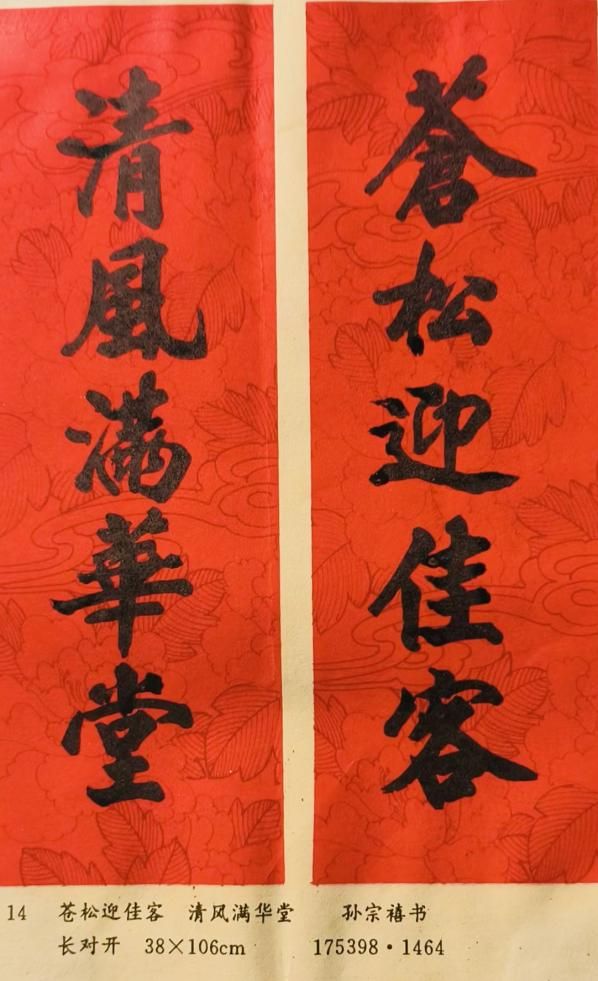 蒼松迎佳客
清風滿華堂
14 苍松迎佳客 清风满华堂 孙宗禧书
长对开 38×106cm 175398·1464